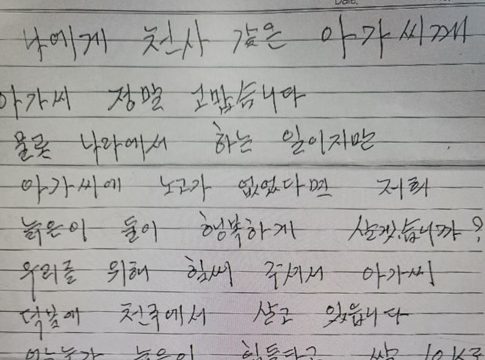 나에게 천사 같은 아가씨께
아가씨 정말 고맙습니다
물론 나라에서 하는 일이지만
아가씨에 노고가 없었다면 저희
늙은이 들이 행복하게 살겠습니까?
우리를 위해 힘써 주셔서 아가씨
덕분에 천국에서 살고 있읍니다
늙은이 힘들다고 쌀 10K로